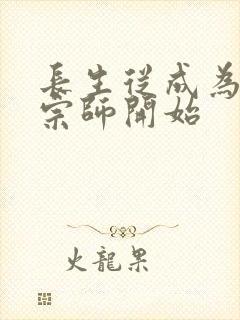 長生從成為
宗師開始
火龍果